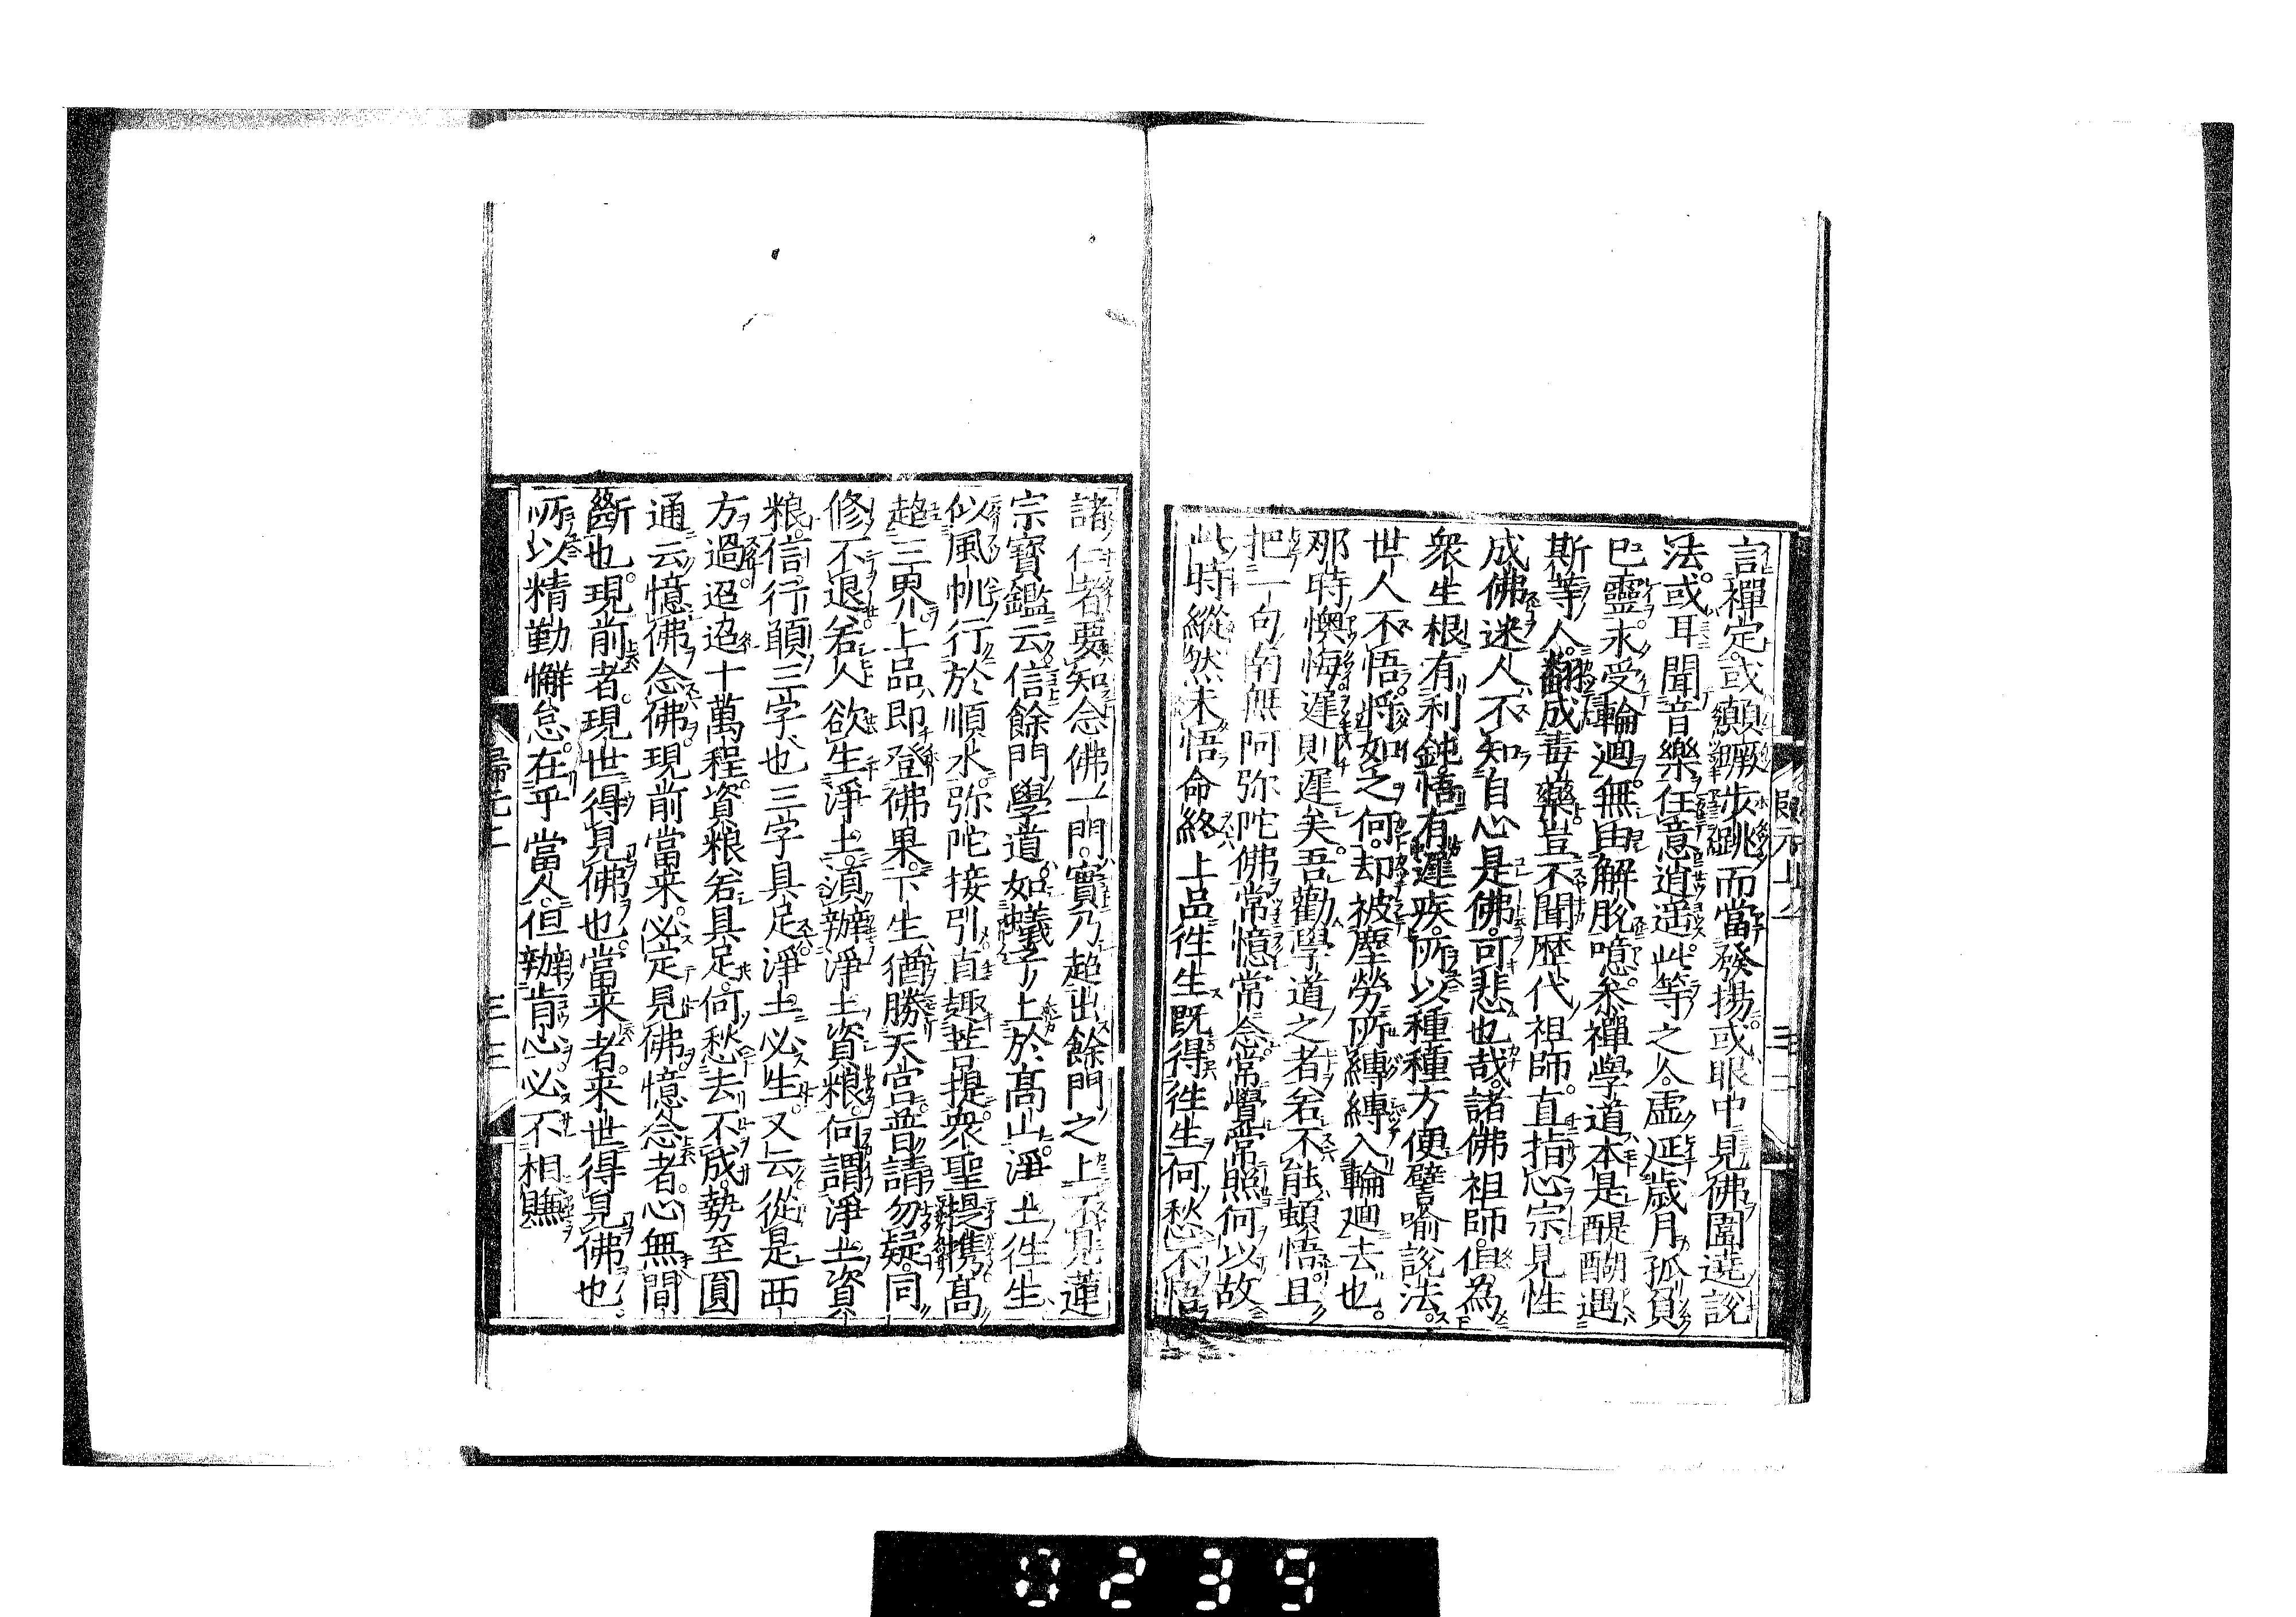 言禪定。或顛蹶步跳而當發揚。或眼中見佛圍遶說
法。或耳聞音樂任意逍遥。此等之人。虚延歳月孤負
巳靈。永受輪廻。無由解脫。噫。叅禪學道本是醍醐遇
斯等人。翻成毒藥。豈不聞歷代祖師。直指心宗見性
成佛。迷人不知自心是佛。可悲也哉。諸佛祖師。但為
衆生根有利鈍。悟有遲疾。所以種種方便譬喻說法。
世人不悟。將如之何。却被塵勞所縛。縛入輪廻去也。
那時懊悔。遲則遲矣。吾勸學道之者。若不能頓悟。且
把一句南無阿弥陀佛。常憶常念。常覺常照。何以故
此時縱然未悟。命終上品徃生。既得徃生。何愁不悟
諸仁者。要知念佛一門。實乃超出餘門之上。不見蓮
宗寶鑑云。信餘門學道。如蟻子上於高山。淨土徃生
似風帆行於順水。弥陀接引直趣菩提。衆聖提携高
超三界。上品即登佛果。下生猶勝天宮。普請勿疑。同
修不退。若人欲生淨土。湏辦淨土資粮。何謂淨土資
粮。信行願三字也。三字具足。淨土必生。又云。從是西
方過迢迢十萬程。資粮若具足。何愁去不成。勢至圓
通云。憶佛念佛。現前當来。必定見佛。憶念者。心無間
斷也。現前者。現世得見佛也。當来者。来世得見佛也。
所以精勤懈怠。在乎當人。但辦肯心。必不相賺
歸元二
三三